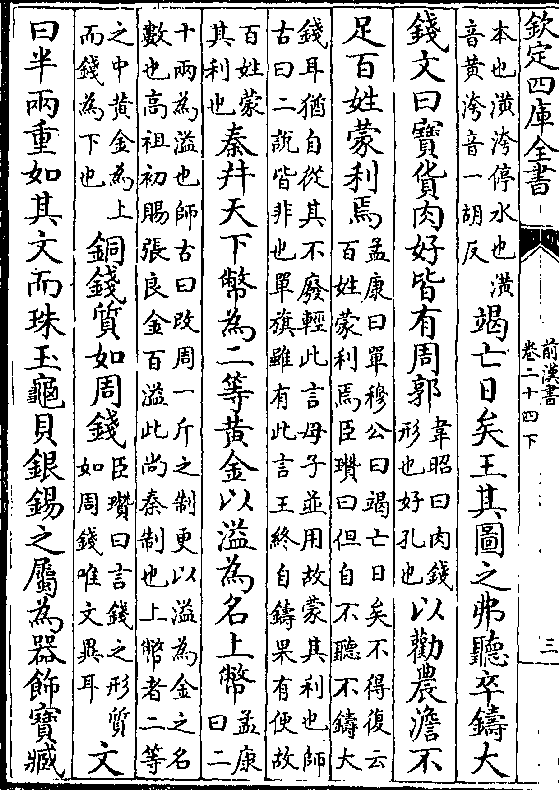 欽定四庫全書
前漢書
卷二十四下
三
本也潢洿停水也潢
音黃洿音一胡反
竭亡日矣王其圖之弗聽卒鑄大
錢文曰寶貨肉好皆有周郭
韋昭曰肉錢
形也好孔也
以勸農澹不
足百姓蒙利焉
孟康曰單穆公曰竭亡日矣不得復云
百姓蒙利焉臣瓚曰但自不聽不鑄大
錢耳猶自從其不廢輕此言母子並用故蒙其利也師
古曰二說皆非也單旗雖有此言王終自鑄果有便故
百姓蒙
其利也
秦幷天下幣為二等黃金以溢為名上幣
孟康
曰二
十兩為溢也師古曰改周一斤之制更以溢為金之名
數也高祖初賜張良金百溢此尚秦制也上幣者二等
之中黃金為上
而錢為下也
銅錢質如周錢
臣瓚曰言錢之形質
如周錢唯文異耳
文
曰半兩重如其文而珠玉龜貝銀錫之屬為器飾寶臧